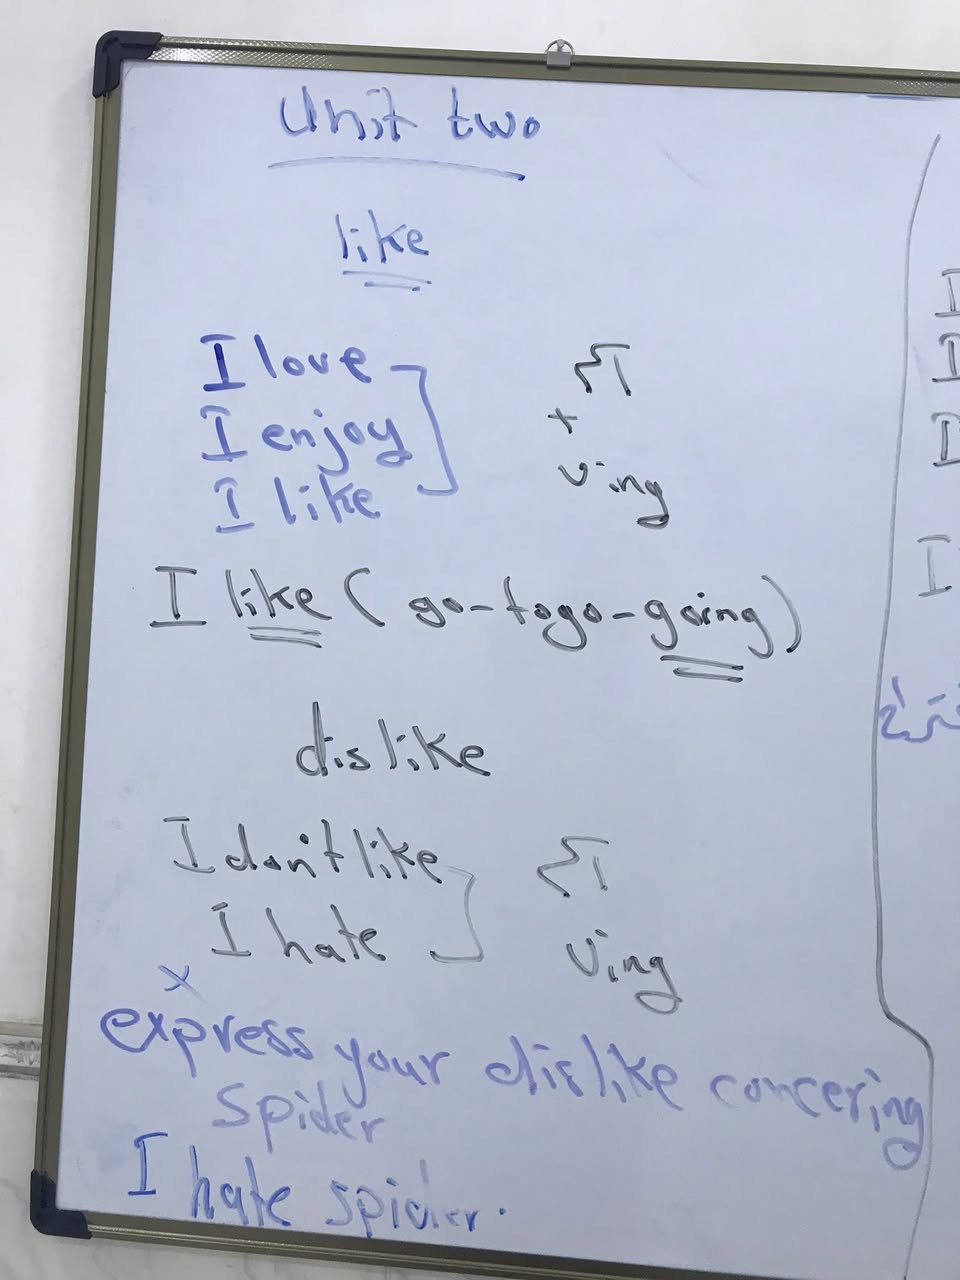 Unit two
like
I love
I enjoy
I like
+
ving
I like (go-to go-going)
dislike
I don't like
I hate
ving
x
express your dislike concering
spider
I hate spider.
I
I
I
I